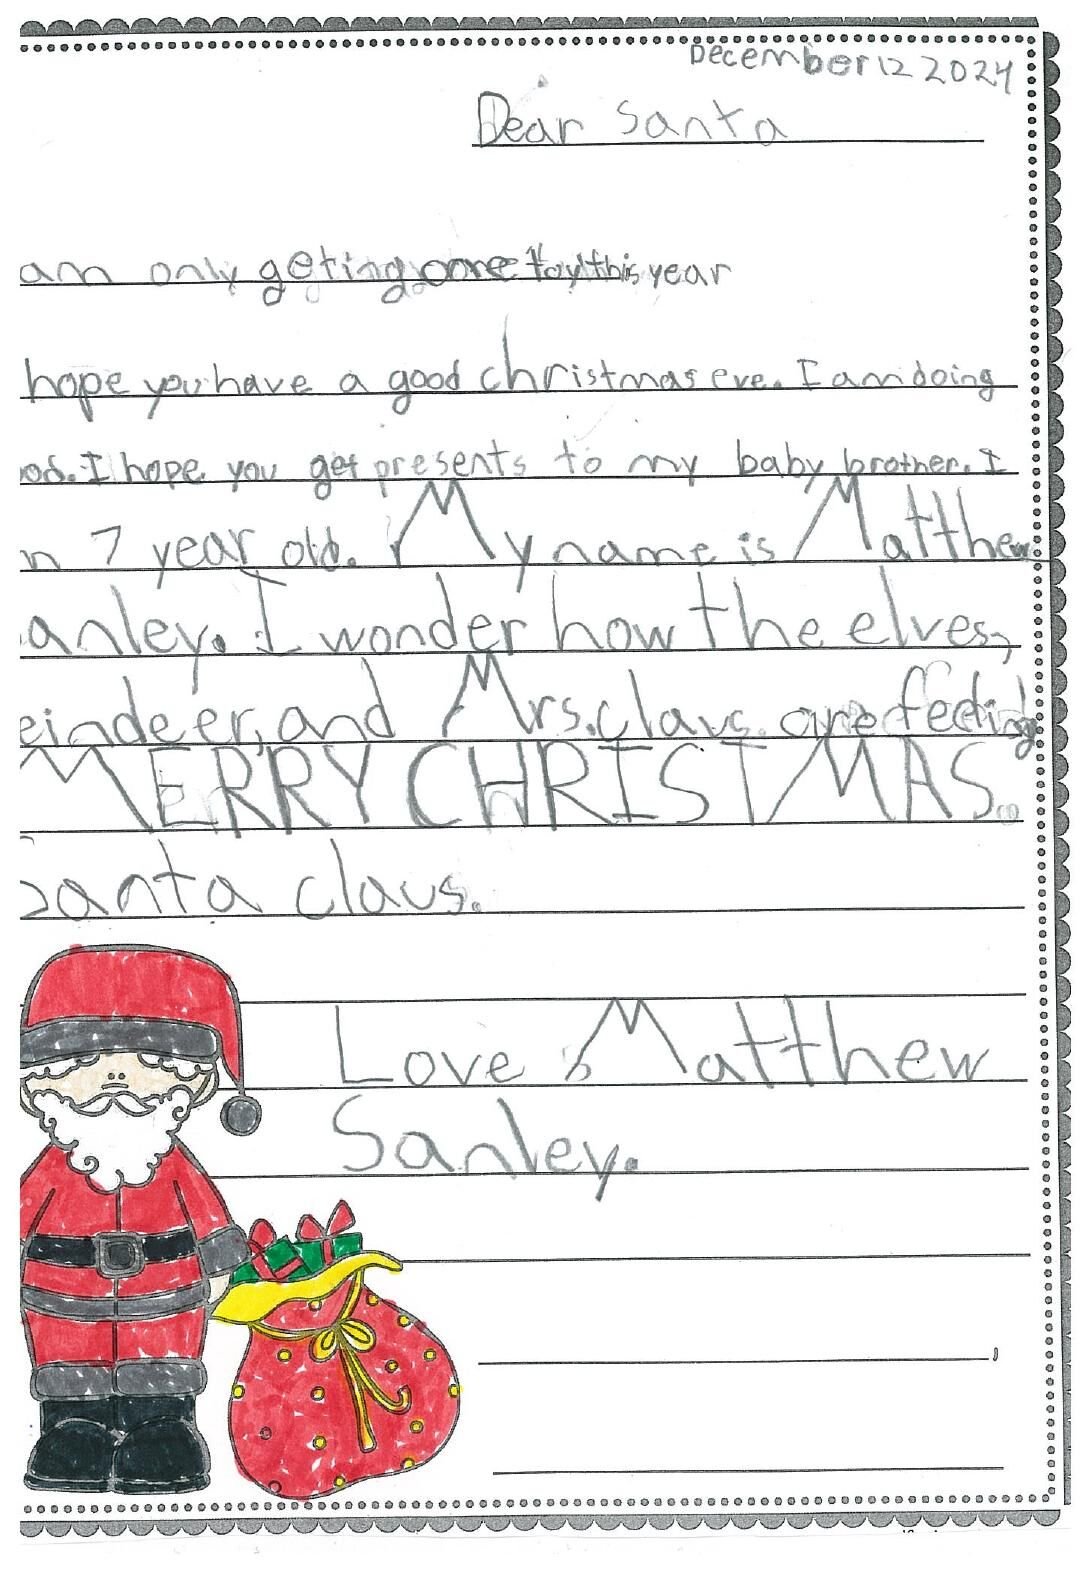 December 12 2024
Dear Santa
am only geting one toy this year
hope you have a good christmas eve. I am doing
od. I hope you get presents to my baby brother. I
m 7 year old. My name is Matthew
anley. I wonder how the elves,
eindeer, and Mrs. claus. are feeling
MERRY CHRISTMAS.
Santa claus.
Love Matthew
Sanley.
,